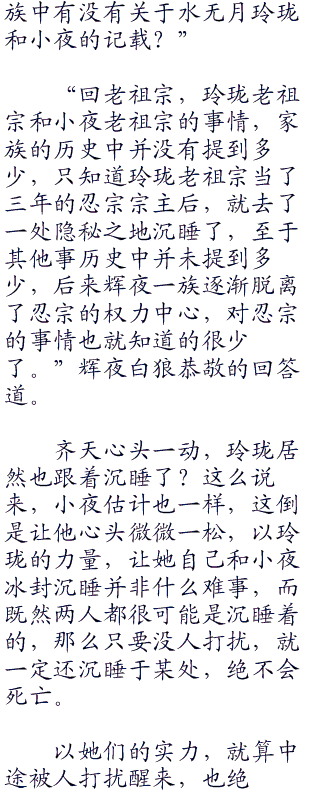 族中有没有关于水无月玲珑
和小夜的记载？”
“回老祖宗，玲珑老祖
宗和小夜老祖宗的事情，家
族的历史中并没有提到多
少，只知道玲珑老祖宗当了
三年的忍宗宗主后，就去了
一处隐秘之地沉睡了，至于
其他事历史中并未提到多
少，后来辉夜一族逐渐脱离
了忍宗的权力中心，对忍宗
的事情也就知道的很少
了。”辉夜白狼恭敬的回答
道。
齐天心头一动，玲珑居
然也跟着沉睡了？这么说
来，小夜估计也一样，这倒
是让他心头微微一松，以玲
珑的力量，让她自己和小夜
冰封沉睡并非什么难事，而
既然两人都很可能是沉睡着
的，那么只要没人打扰，就
一定还沉睡于某处，绝不会
死亡。
以她们的实力，就算中
途被人打扰醒来，也绝